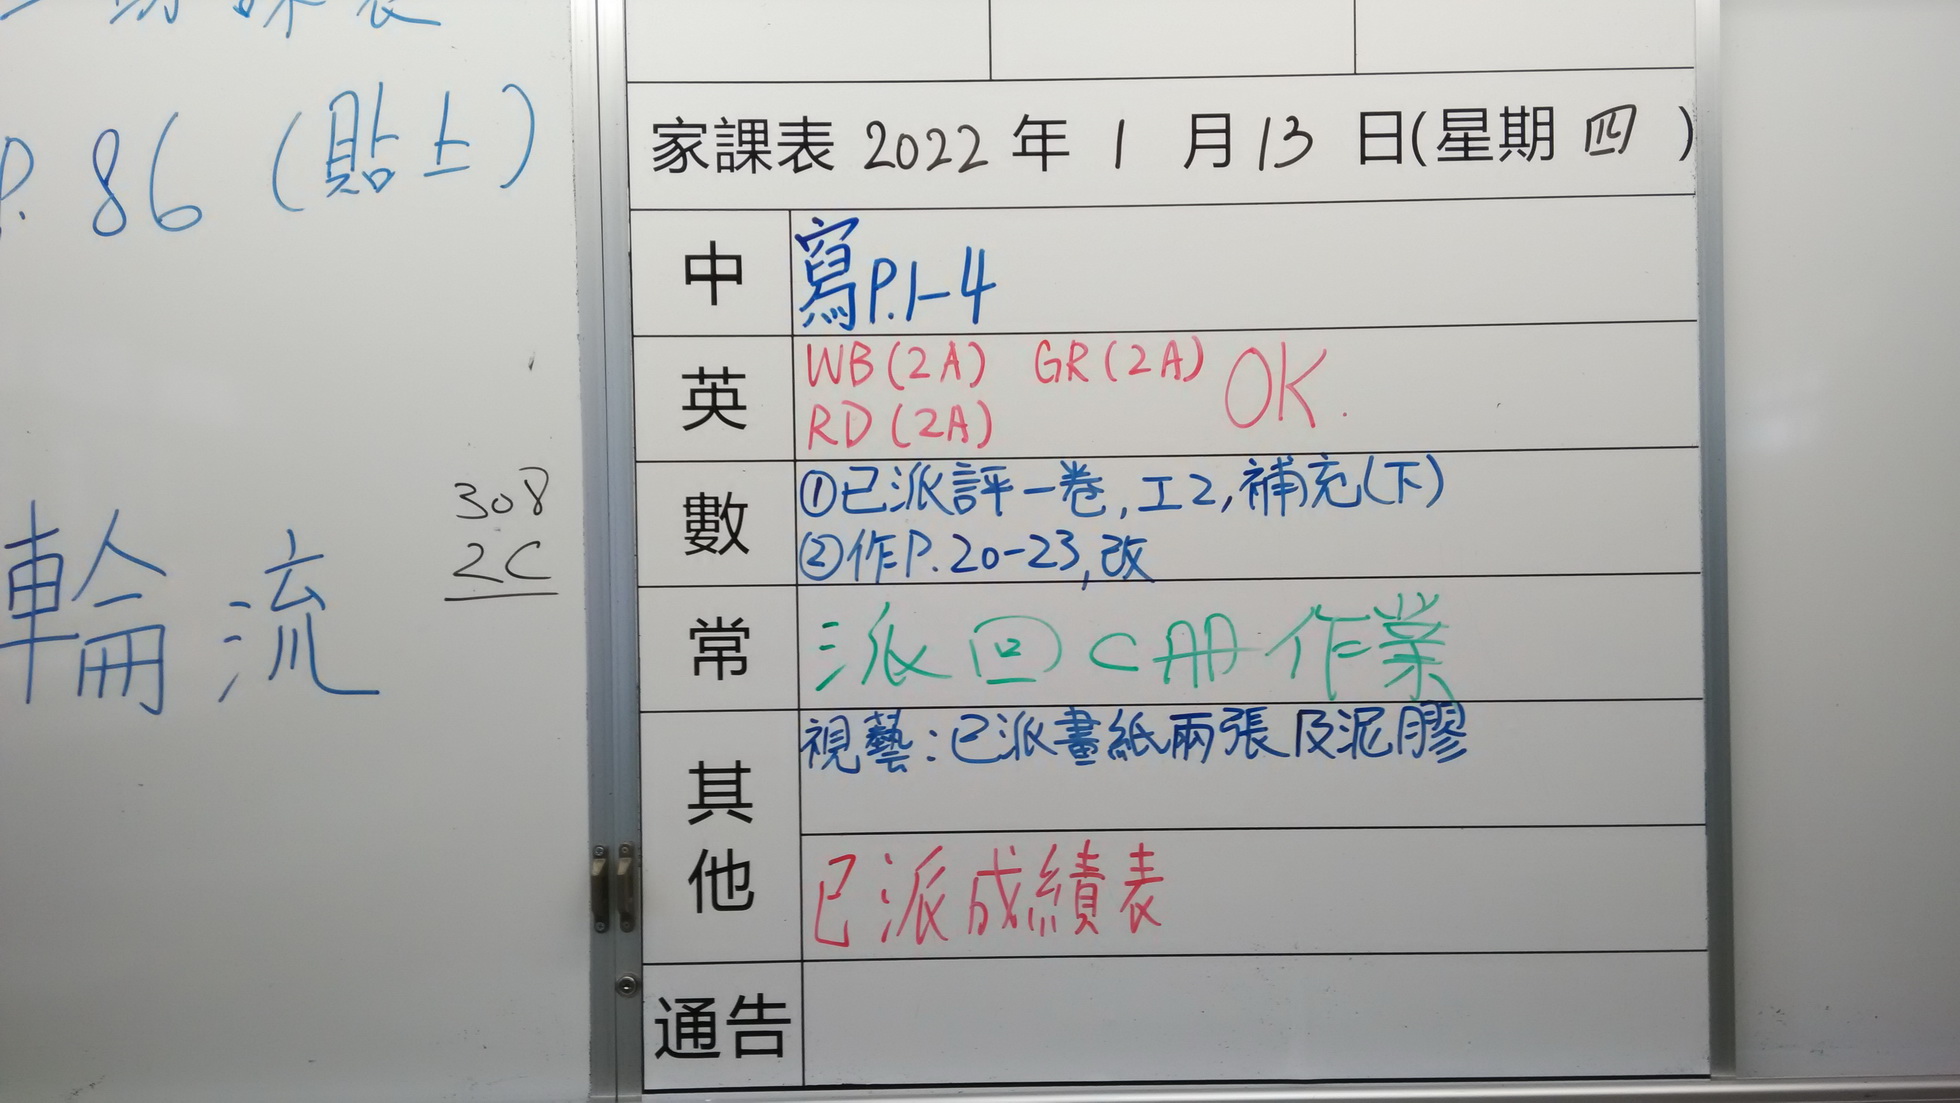 P.86(貼上)
輪流
308
2C
家課表 2022 年 1 月 13 日(星期 四 )
中 寫P.1-4
英 WB(2A) GR(2A) OK.
RD(2A)
數 ①已派評一卷,工2,補充(下)
②作P.20-23,改
常 派回C冊作業
其他 視藝:已派畫紙兩張及泥膠
已派成績表
通告